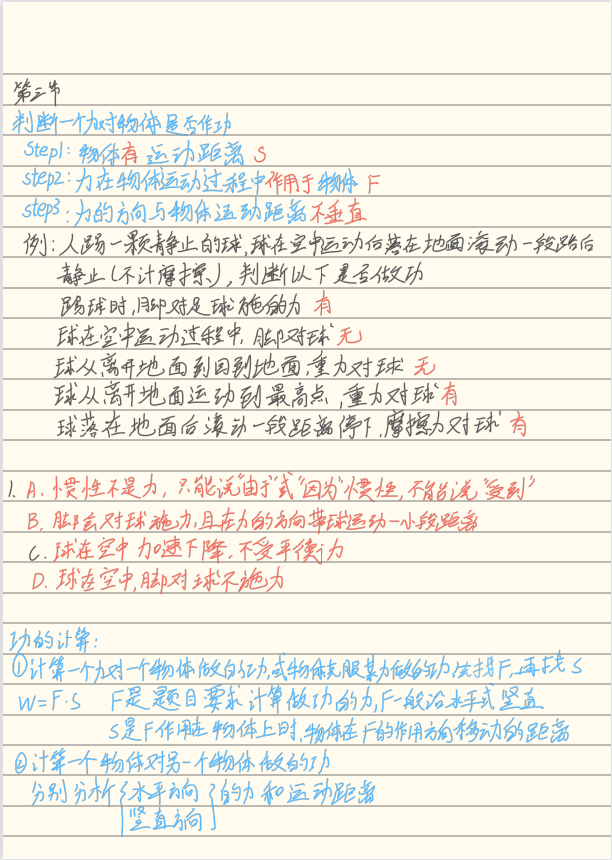 第三节
判断一个力对物体是否作功
step1: 物体有运动距离 S
step2: 力在物体运动过程中作用于物体 F
step3: 力的方向与物体运动距离不垂直
例: 人踢一颗静止的球,球在空中运动后落在地面滚动一段路后
静止(不计摩擦), 判断以下是否做功
踢球时,脚对足球施的力 有
球在空中运动过程中, 脚对球 无
球从离开地面到回到地面,重力对球 无
球从离开地面运动到最高点,重力对球 有
球落在地面后滚动一段距离停下,摩擦力对球 有
1. A. 惯性不是力, 只能说"由于"或"因为"惯性,不能说"受到"
B. 脚会对球施力,且在力的方向带球运动一小段距离
C. 球在空中加速下降,不受平衡力
D. 球在空中,脚对球不施力
功的计算:
①计算一个力对一个物体做的功,或物体克服某力做的功,先找F,再找S
W=F·S F是题目要求计算做功的力,F一般沿水平或竖直
S是F作用在物体上时,物体在F的作用方向移动的距离
②计算一个物体对另一个物体做的功
分别分析{水平方向}的力和运动距离
竖直方向